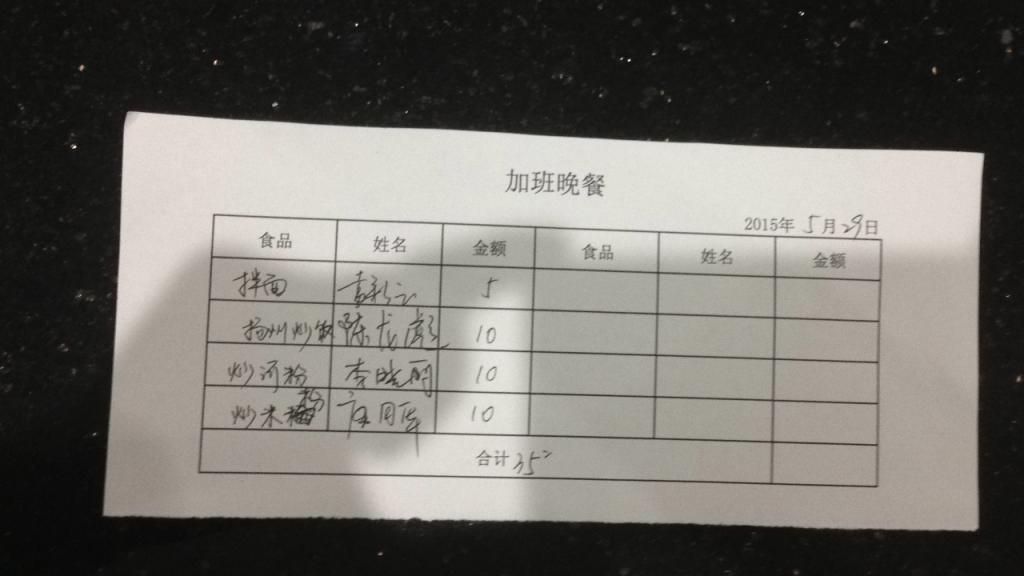 加班晚餐
2015年 5月29日
食品 姓名 金额 食品 姓名 金额
拌面 5
扬州炒饭 陈龙彪 10
炒河粉 李晓丽 10
炒米粉 10
合计 35